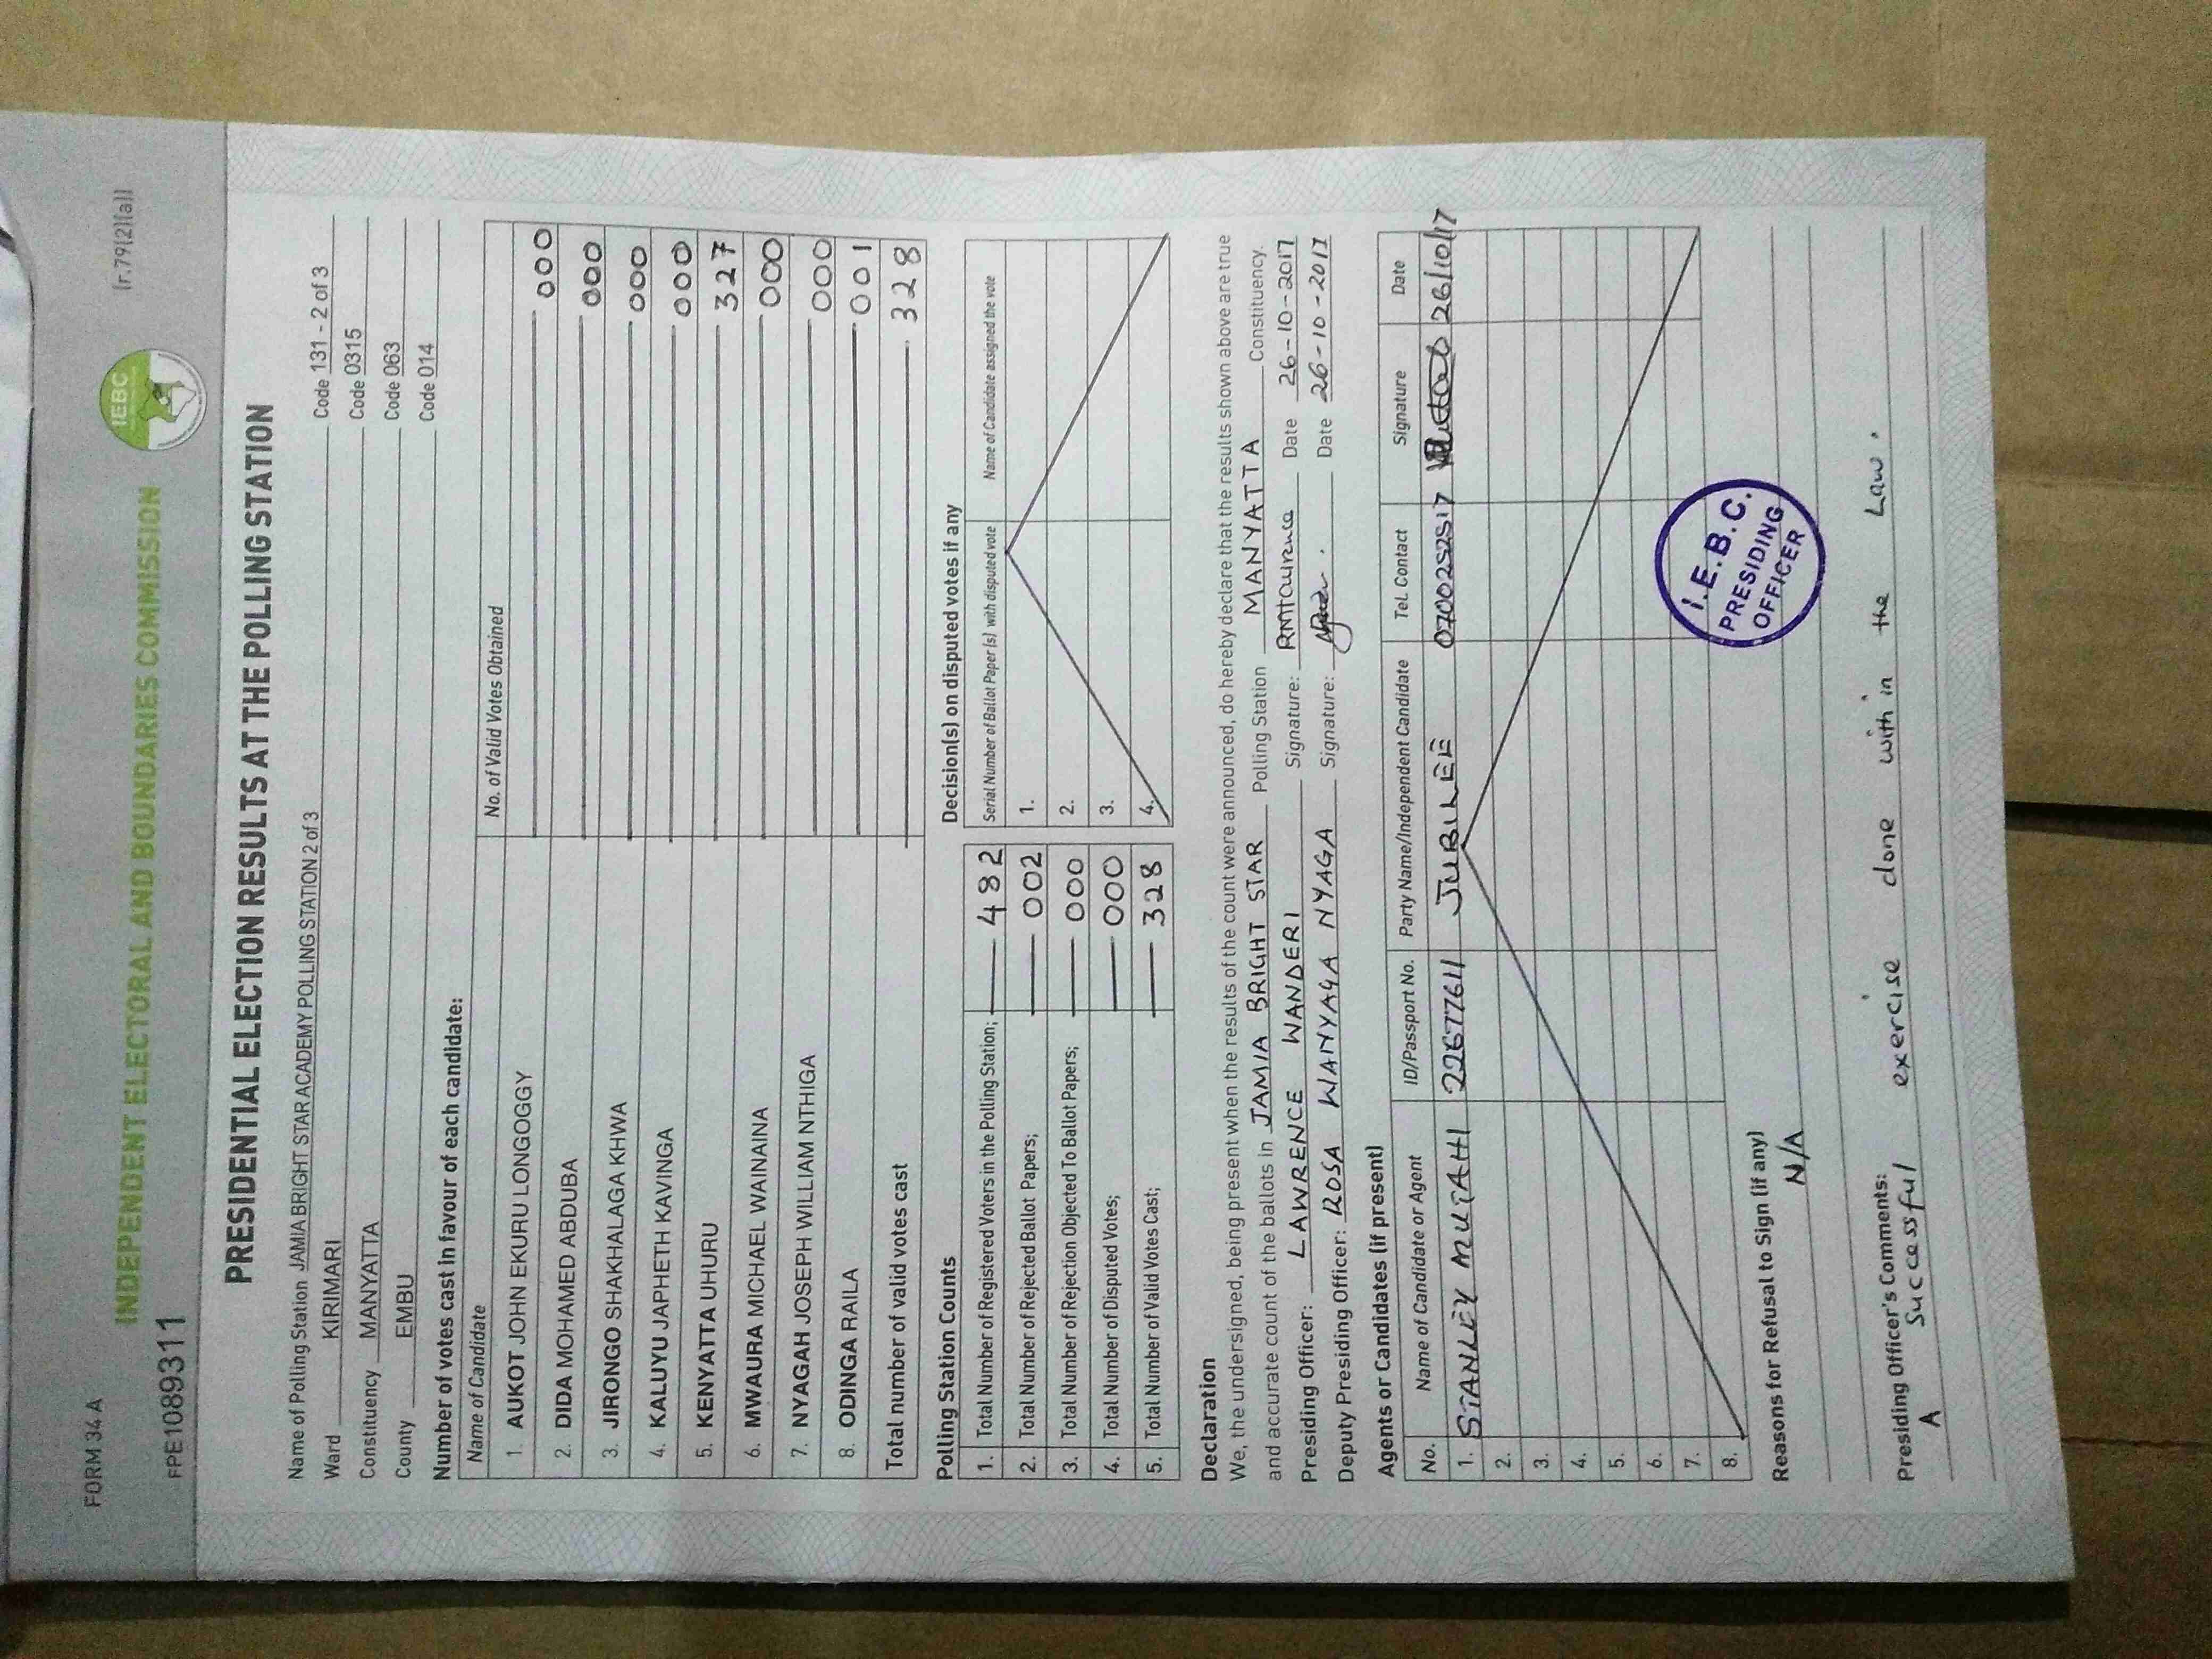 FORM 34 A
(r.79(2)(a))
INDEPENDENT ELECTORAL AND BOUNDARIES COMMISSION
IEBC
FPE1089311
PRESIDENTIAL ELECTION RESULTS AT THE POLLING STATION
Name of Polling Station JAMIA BRIGHT STAR ACADEMY POLLING STATION 2 of 3 Code 131 - 2 of 3
Ward KIRIMARI Code 0315
Constituency MANYATTA Code 063
County EMBU Code 014
Number of votes cast in favour of each candidate:
Name of Candidate No. of Valid Votes Obtained
1. AUKOT JOHN EKURU LONGOGGY 000
2. DIDA MOHAMED ABDUBA 000
3. JIRONGO SHAKHALAGA KHWA 000
4. KALUYU JAPHETH KAVINGA 000
5. KENYATTA UHURU 327
6. MWAURA MICHAEL WAINAINA 000
7. NYAGAH JOSEPH WILLIAM NTHIGA 000
8. ODINGA RAILA 001
Total number of valid votes cast 328
Polling Station Counts
1. Total Number of Registered Voters in the Polling Station; 482
2. Total Number of Rejected Ballot Papers; 002
3. Total Number of Rejection Objected To Ballot Papers; 000
4. Total Number of Disputed Votes; 000
5. Total Number of Valid Votes Cast; 328
Decision(s) on disputed votes if any
Serial Number of Ballot Paper (s) with disputed vote Name of Candidate assigned the vote
1.
2.
3.
4.
Declaration
We, the undersigned, being present when the results of the count were announced, do hereby declare that the results shown above are true
and accurate count of the ballots in JAMIA BRIGHT STAR Polling Station MANYATTA Constituency.
Presiding Officer: LAWRENCE WANDERI Signature: Date 26-10-2017
Deputy Presiding Officer: ROSA WANYAGA NYAGA Signature: Date 26-10-2017
Agents or Candidates (if present)
No. Name of Candidate or Agent ID/Passport No. Party Name/Independent Candidate Tel. Contact Signature Date
1. STANLEY MUTAHI 22677611 JUBILEE 0700252517 26/10/17
2.
3.
4.
5.
6.
7.
8.
I.E.B.C.
PRESIDING
OFFICER
Reasons for Refusal to Sign (if any)
N/A
Presiding Officer's Comments:
A Successful exercise done with in the Law.